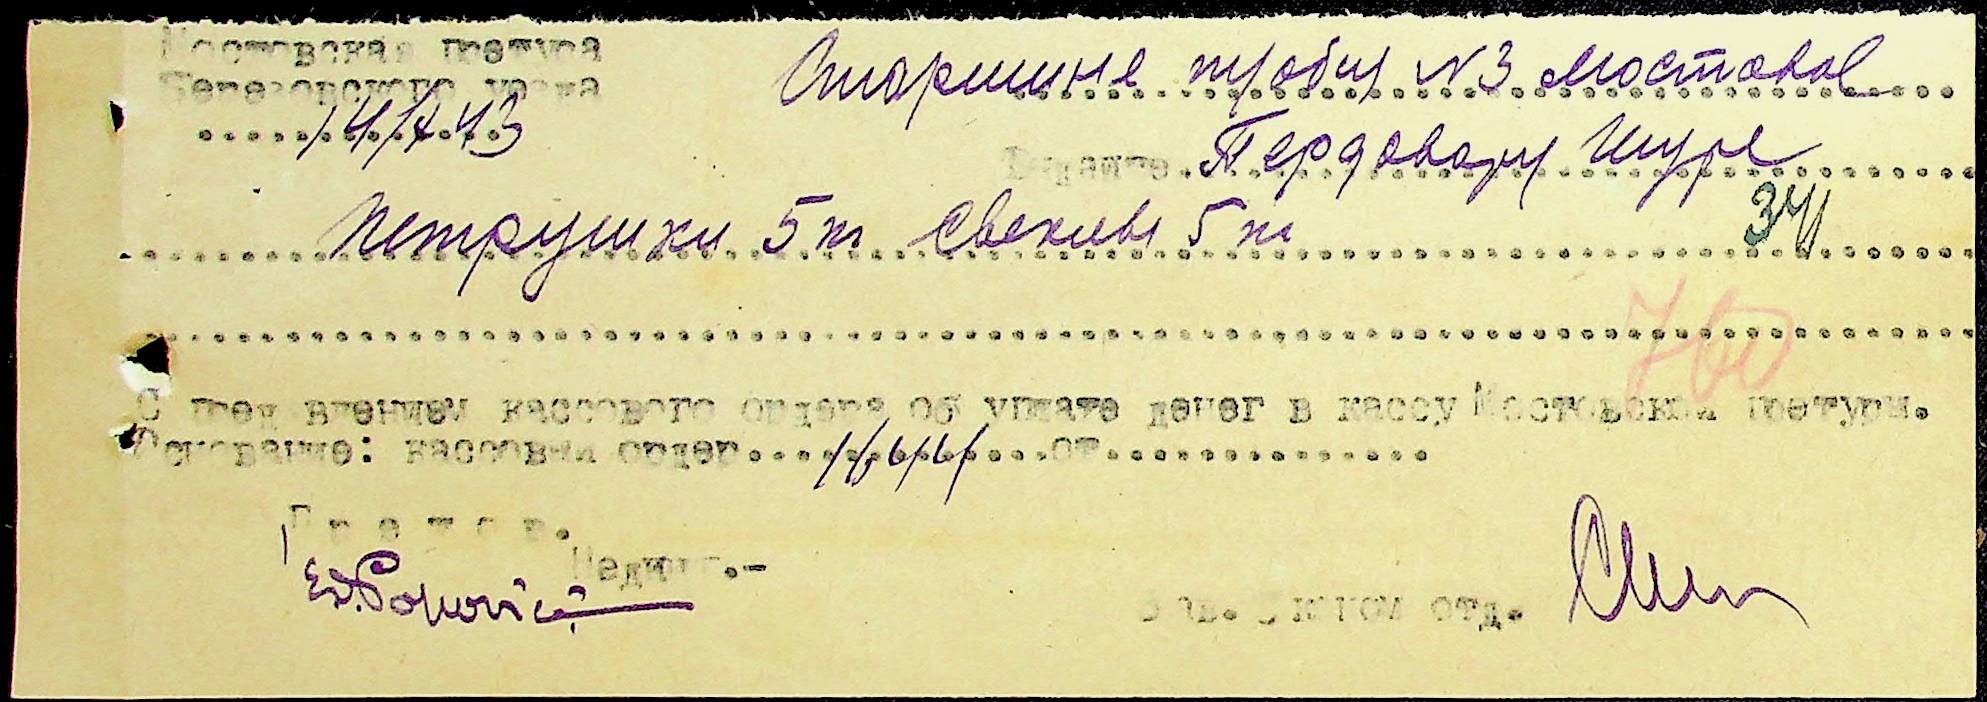 Мостовская претура
Березовского уезда
14/X 43
Старшине тробщ N3 Мостовое
Выдайте Пердовару Шуре
Петрушки 5 кг Свеклы 5 кг 34
С пред влением кассового ордера об уплате денег в кассу Мостовской претуры.
Основание: кассовый ордер от
Претор.
Зав. Эконом отд.